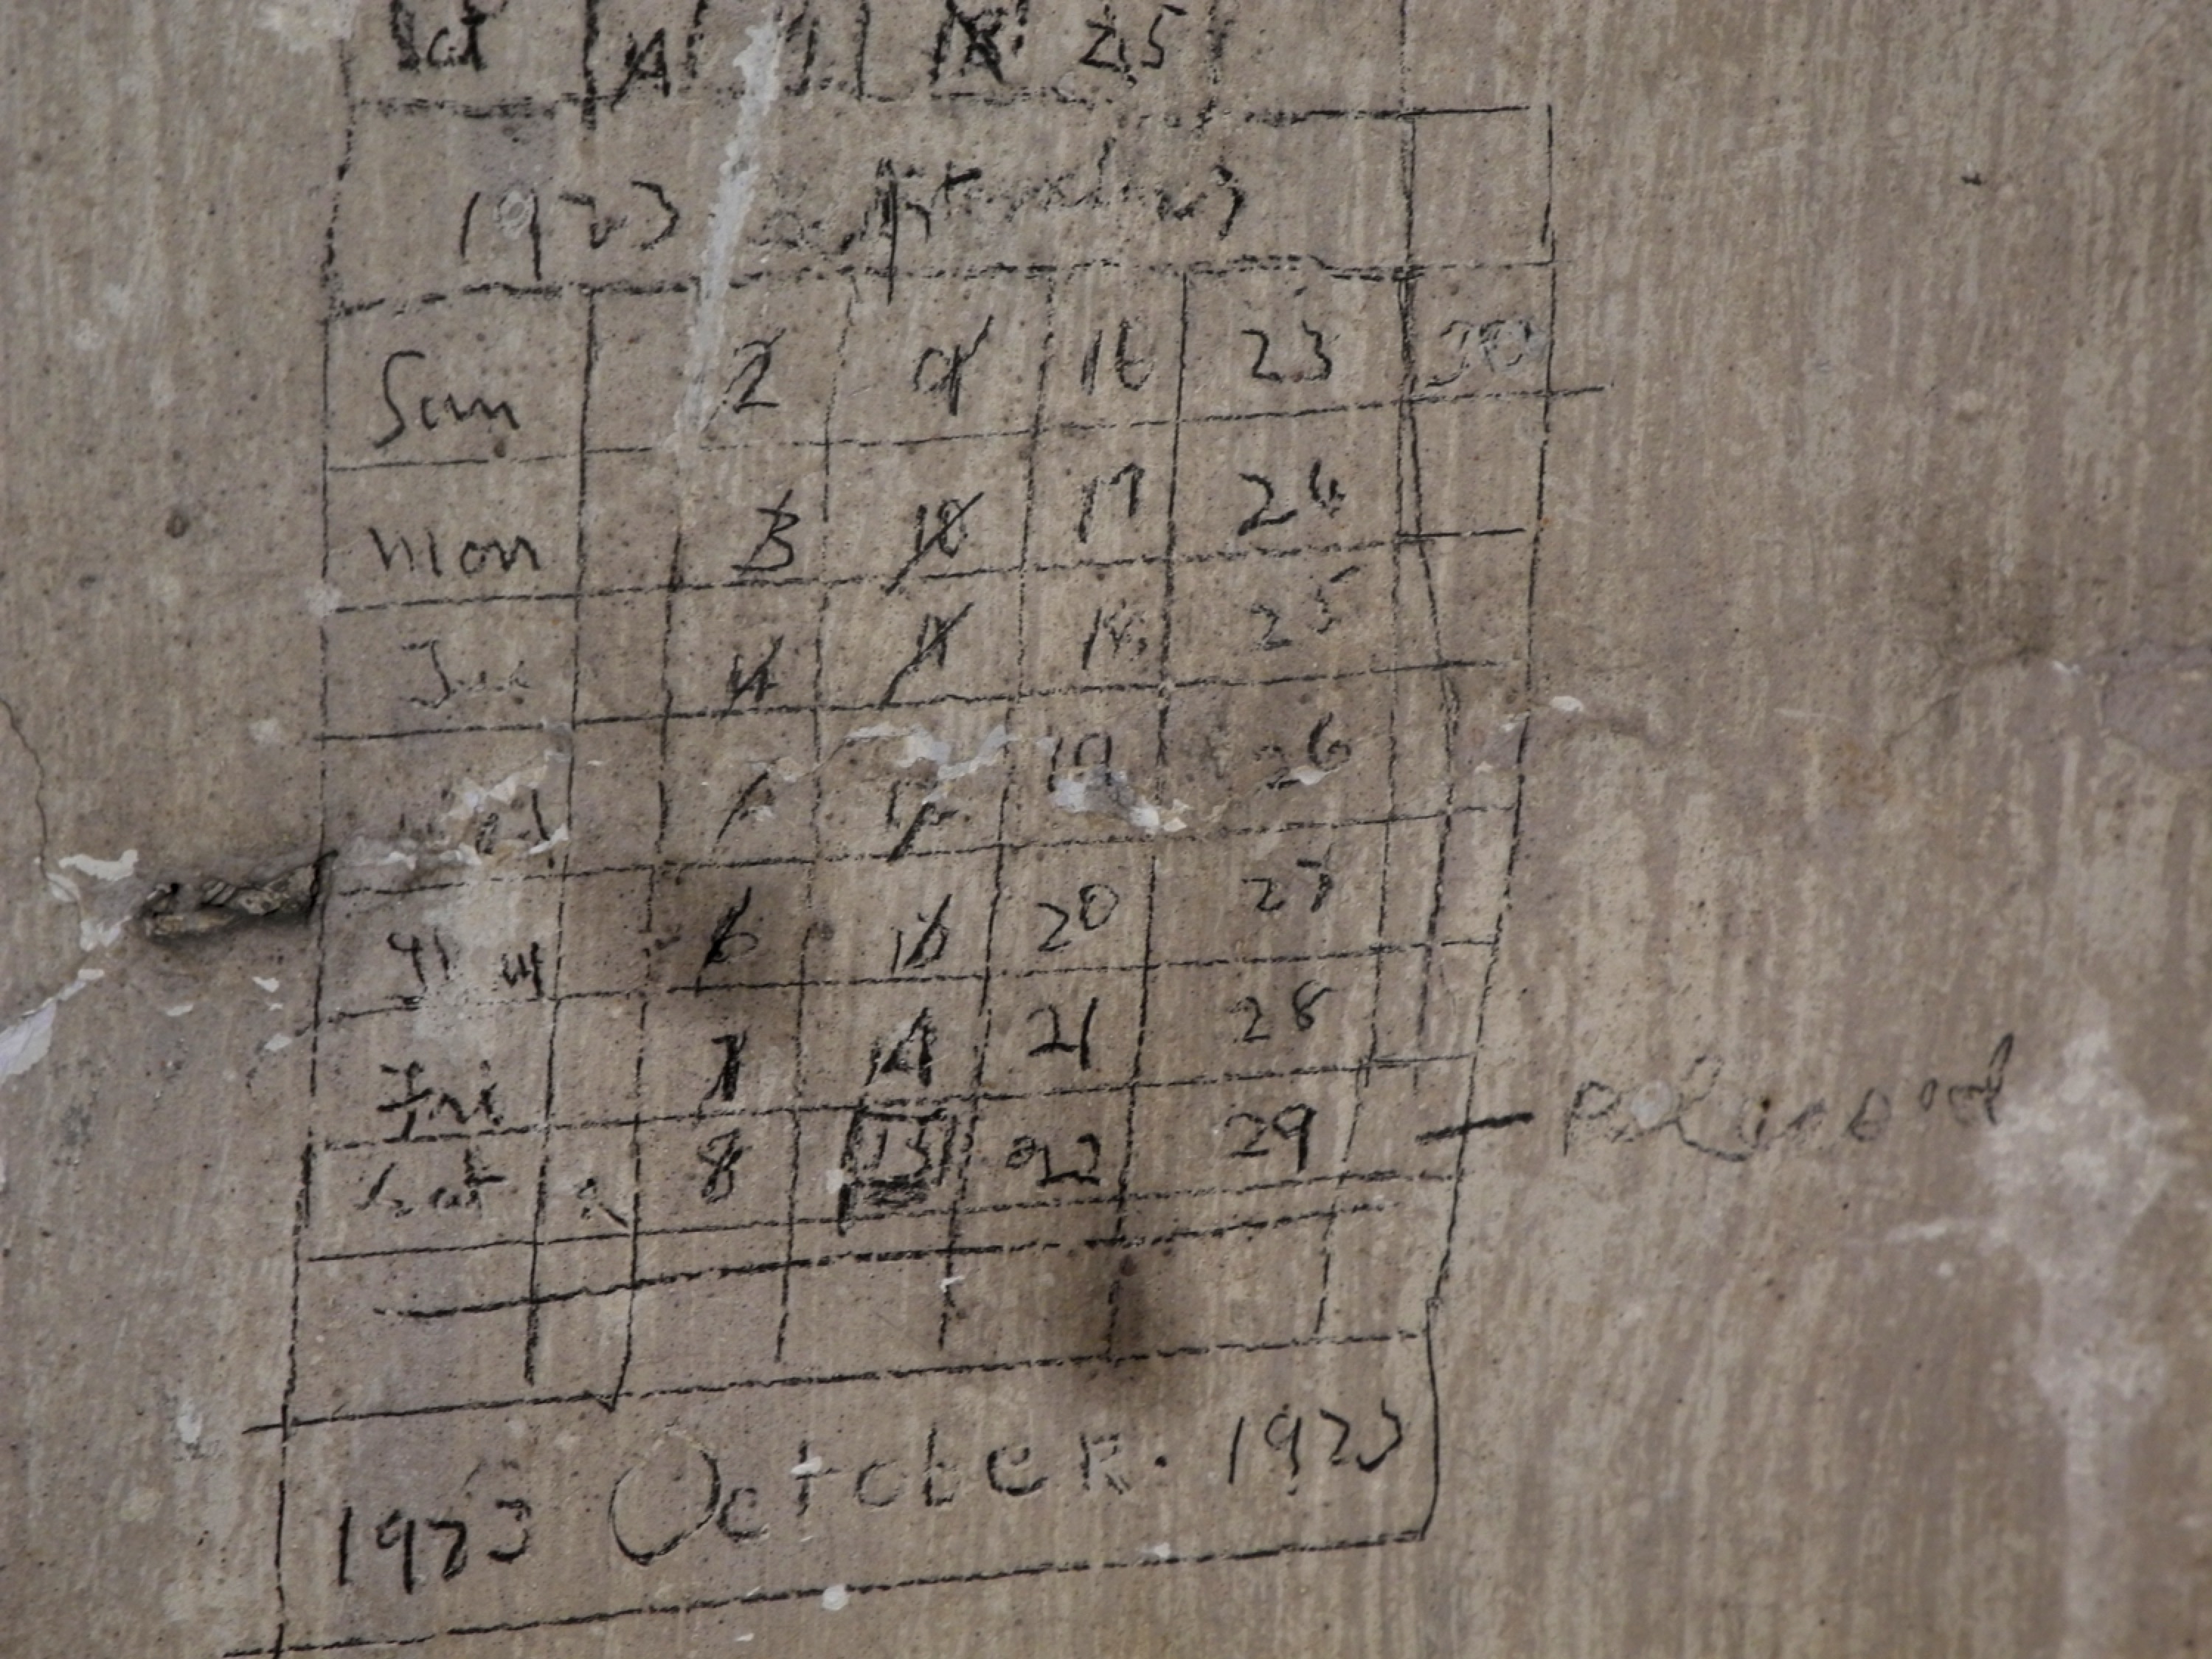 Sat 4 11 18 25
1923 September
Sun 2 9 16 23 30
Mon 3 10 17 24
Tue 4 11 18 25
12 19 26
6 13 20 27
Fri 7 14 21 28
Sat 8 15 22 29
1923 October. 1923